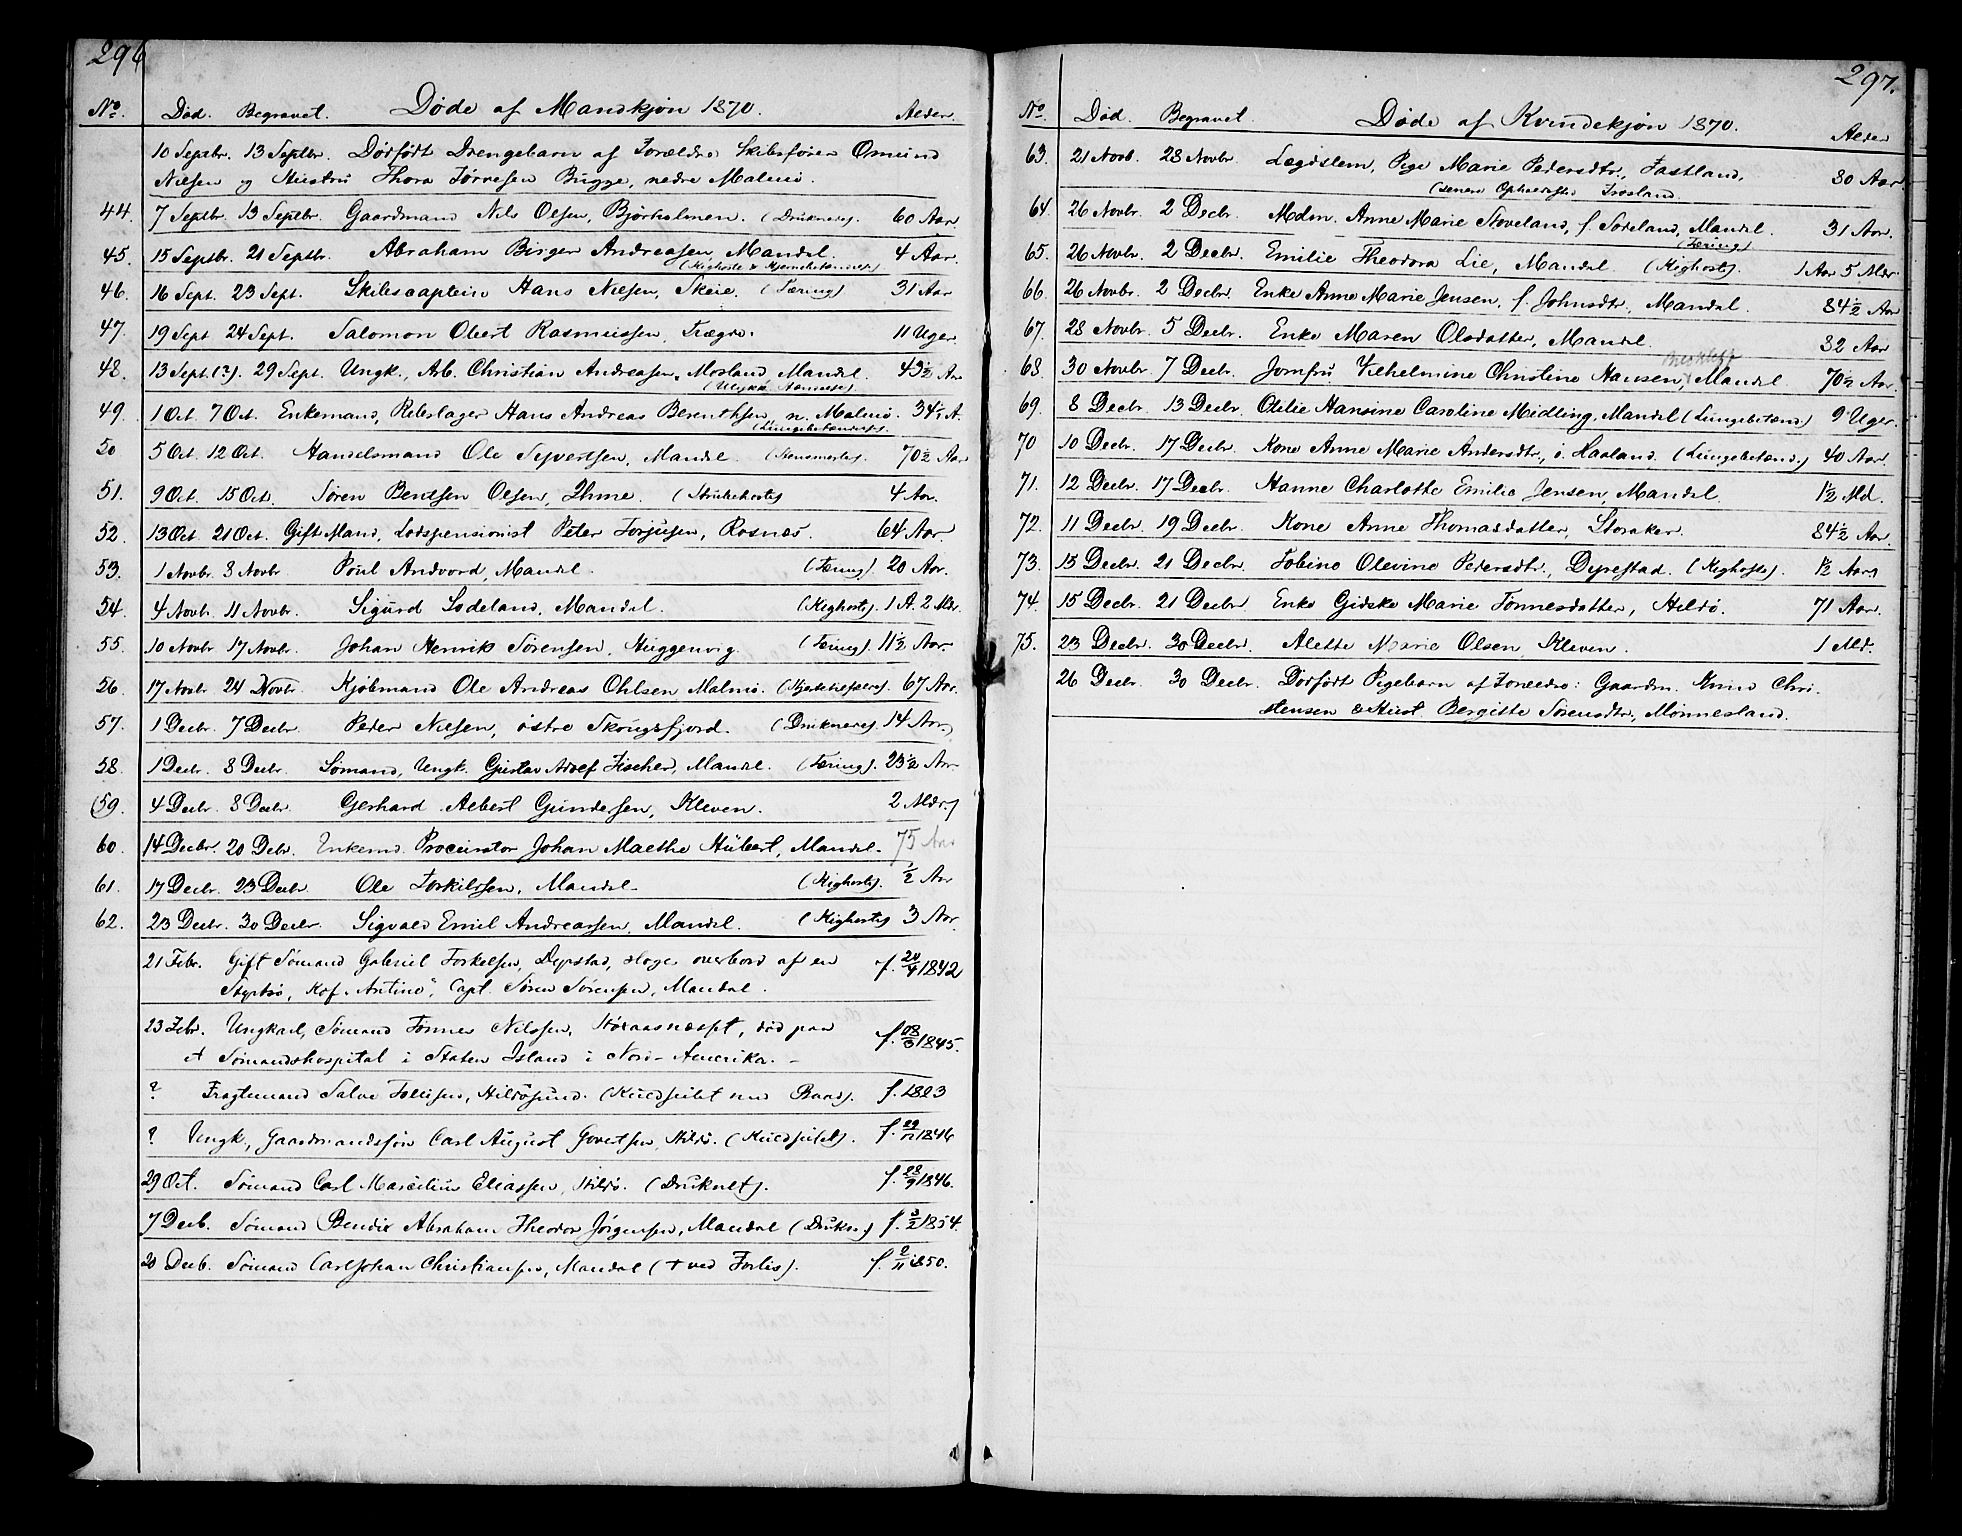 296
No. Død. Begravet. Døde af Mandkjøn 1870. Alder.
10 Septbr. 13 Septbr. Dødfødt Drengebarn af Forældre Skibsfører Omund
Nielsen og Hustru Thora Tørresen Bugge, nedre Malmø.
44. 7 Septbr. 13 Septbr. Gaardmand Nils Olsen, Bjørkolmen. (Druknede) 60 Aar
45. 15 Septbr. 21 Septbr. Abraham Birger Andreasen, Mandal. 4 Aar.
(Kighoste & Hjernebetændelse).
46. 16 Sept. 23 Sept. Skibscaptein Hans Nielsen, Skeie. (Tæring) 31 Aar
47. 19 Sept 24 Sept. Salomon Obert Rasmussen, Trægde. 11 Uger.
48. 13 Sept.(?). 29 Sept. Ungk., Arb. Christian Andreasen Mosland, Mandal. 43½ Aar
49. 1 Oct. 7 Oct. Enkemand, Rebslager Hans Andreas Berenthsen, n. Malmø. 34½ A.
(Lungebetændelse).
50 5 Oct. 12 Oct. Handelsmand Ole Syvertsen, Mandal. 70½ Aar
51. 9 Oct. 15 Oct. Søren Bentsen Olsen, Ihme. (Strubehoste) 4 Aar.
52. 13 Oct. 21 Oct. Gift Mand, Lodspensionist Peter Torjusen, Rosnæs. 64 Aar.
53. 1 Novbr. 8 Novbr Poul Andvord, Mandal. (Tæring) 20 Aar.
54. 4 Novbr. 11 Novbr. Sigurd Sodeland, Mandal. (Kighoste) 1 A. 2 Mdr.
55. 10 Novbr 17 Novbr. Johan Henrik Sørensen, Huggenvig. (Tæring). 11½ Aar.
56. 17 Novbr 24 Novbr. Kjøbmand Ole Andreas Ohlsen Malmø. 67 Aar.
57. 1 Decbr. 7 Decbr. Peder Nielsen, østre Skougsfjord. (Druknede) 14 Aar.
58. 1 Decbr. 8 Decbr. Sømand, Ungk. Gustav Adolf Fischer, Mandal. (Tæring). 23½ Aar
(59. 4 Decbr. 8 Decbr. Gerhard Albert Gundersen, Kleven. 2 Mdr.)
60. 14 Decbr. 20 Debr. Enkemd. Procurator Johan Malthe Hübert, Mandal. 75 Aar
61. 17 Decbr. 23 Decbr Ole Torkilssen, Mandal. (Kighoste). ½ Aar
62. 23 Decbr. 30 Decbr. Sigvald Emil Andreassen, Mandal. (Kighoste) 3 Aar.
21 Febr. Gift Sømand Gabriel Torkelsen, Dyrstad, sloges overbord af en
Styrtsø, Kof. "Antino", Capt. Søren Sørensen, Mandal. f. 24/4 1842
23 Febr. Ungkarl, Sømand Tønnes Nilssen, død paa
et Sømandshospital i Staten Island i Nord-Amerika. f. 1845.
? Fragtemand Salve Tellisen, Hildøsund. (Kuldseilet med Baad). f. 1823
? Ungk., Gaardmandssøn Carl August Govertsen, Hildø. (Kuldseilet). f. 29/12 1846
29 Oct. Sømand Carl Marcelius Eliassen, Hildø. (Druknet). f. 28/9 1846.
7 Decb. Sømand Bendix Abraham Theodor Jørgensen, Mandal (Drukn.) f. 3/2 1854.
20 Decb. Sømand Carl Johan Christiansen, Mandal (+ ved Forlis). f. 2/11 1850.
297.
No. Død. Begravet. Døde af Kvindekjøn 1870. Alder
63. 21 Novb. 28 Novbr. Lægdslem, Pige Marie Pedersdtr., Jastland, 80 Aar
64. 26 Novbr. 2 Decbr. Mdm. Anne Marie Stoveland, f. Sodeland, Mandal. 31 Aar.
(Tæring)
65. 26 Novbr. 2 Decbr. Emilie Theodora Lie, Mandal. (Kighoste). 1 Aar 5 Mdr.
66. 26 Novbr. 2 Decbr. Enke Anne Marie Jensen, f. Johnsdtr., Mandal. 84½ Aar
67. 28 Novbr. 5 Decbr. Enke Maren Olsdatter, Mandal. 82 Aar
68. 30 Novbr. 7 Decbr. Jomfru Vilhelmine Christine Hansen, Mandal 70½ Aar.
69. 8 Decbr. 13 Decbr. Otilie Hansine Caroline Midling, Mandal (Lungebetænd.) 9 Uger.
70 10 Decbr. 17 Decbr. Kone Anne Marie Andersdtr., i. Haaland. (Lungebetænd.) 40 Aar.
71. 12 Decbr. 17 Decbr. Hanne Charlotte Emilie Jensen, Mandal. 1½ Md.
72. 11 Decbr. 19 Decbr. Kone Anne Thomasdatter, Storaker. 84½ Aar.
73. 15 Decbr. 21 Decbr. Tobine Olevine Pedersdtr., Dyrestad. (Kighoste). ½ Aar
74. 15 Decbr. 21 Decbr. Enke Gidske Marie Tønnesdatter, Hildø. 71 Aar.
75. 23 Decbr. 30 Decbr. Alette Marie Olsen, Kleven. 1 Md.
26 Decbr. 30 Decbr. Dødfødt Pigebarn af Forældre: Gaardm. Knud Chri-
stensen & Hust. Bergitte Sørensdtr., Mønnesland.